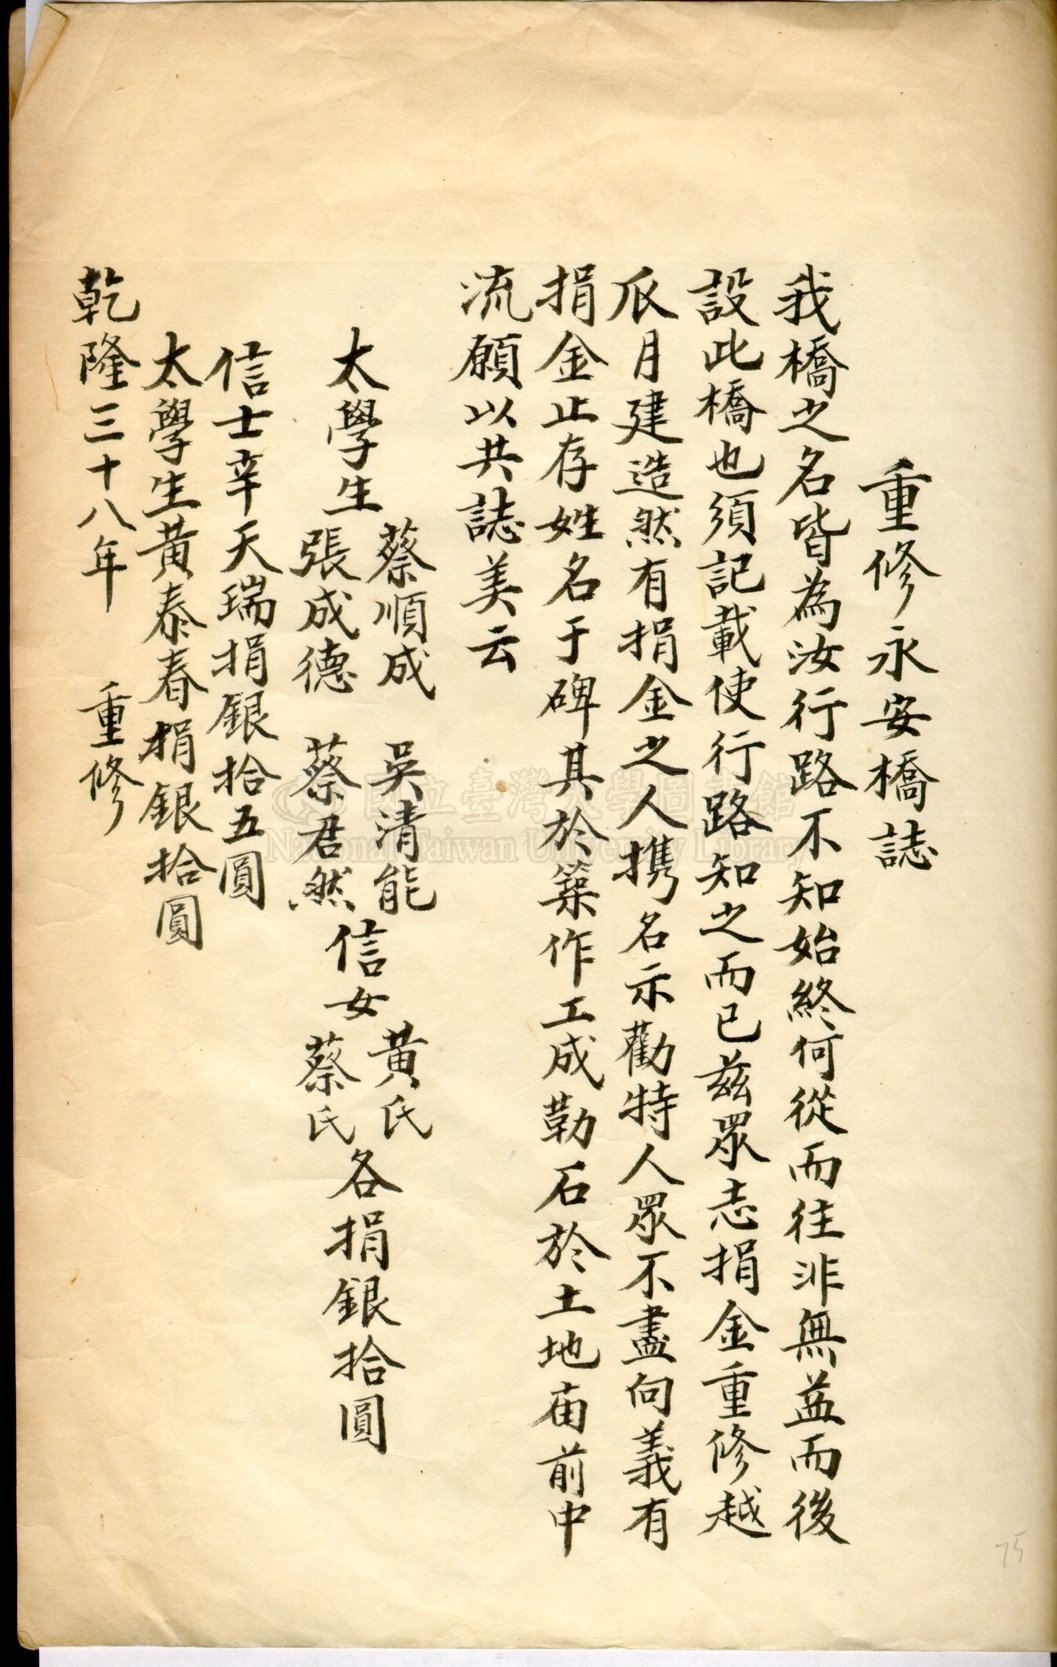 重修永安橋誌
我橋之名皆為汝行路不知始終何從而往非無益而後
設此橋也須記載使行路知之而已茲眾志捐金重修越
瓜月建造然有捐金之人携名示勸特人眾不盡向義有
捐金止存姓名于碑其於築作工成勒石於土地庙前中
流願以共誌美云
太學生
蔡順成 吳清能
張成德 蔡君然
信女
黃氏
蔡氏
各捐銀拾圓
信士辛天瑞捐銀拾五圓
太學生黃泰春捐銀拾圓
乾隆三十八年 重修
國立臺灣大學圖書館
National Taiwan University Library
75